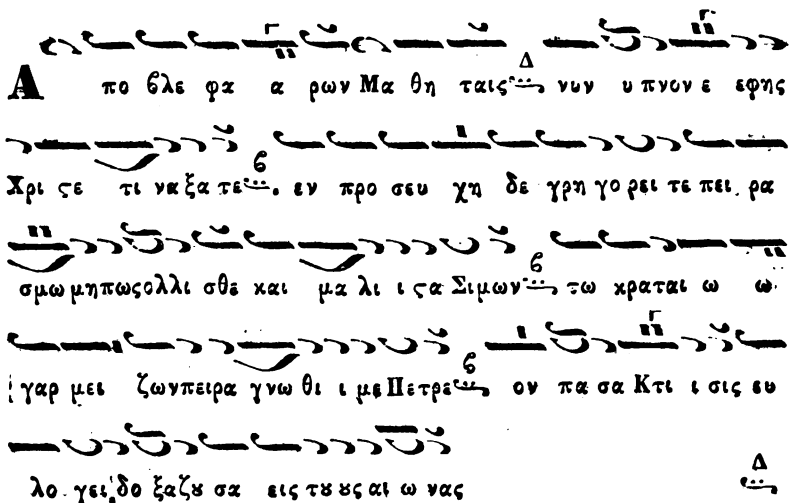 Α πο βλε φα α ρων Μα θη ταις Δ νυν υ πνον ε εφης
Χρι ϛε τι να ξα τε ϐ εν προ σευ χη δε γρη γο ρει τε πει ρα
σμω μηπως ολλι σθε και μα λι ι ϛα Σιμων ϐ τω κραται ω ω
γαρ μει ζων πειρα γνω θι ι με Πετρε ϐ ον πα σα Κτι ι σις ευ
λο γει δο ξαζȣ σα εις τȣ ȣς αι ω νας Δ